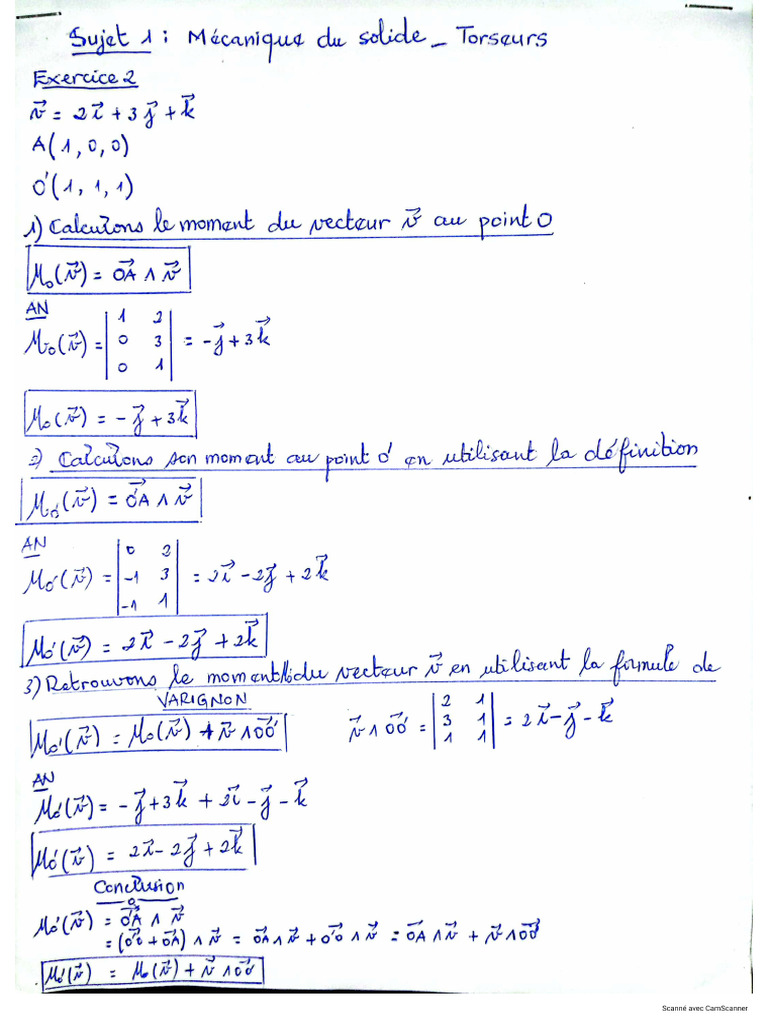 Sujet 1 : Mécanique du solide _ Torseurs
Exercice 2
v⃗ = 2i⃗ + 3j⃗ + k⃗
A(1, 0, 0)
O'(1, 1, 1)
1) Calculons le moment du vecteur v⃗ au point O
M₀(v⃗) = OA⃗ ∧ v⃗
AN
M₀(v⃗) = | 1 2 |
| 0 3 | = -j⃗ + 3k⃗
| 0 1 |
M₀(v⃗) = -j⃗ + 3k⃗
2) Calculons son moment au point O' en utilisant la définition
M₀'(v⃗) = O'A⃗ ∧ v⃗
AN
M₀'(v⃗) = | 0 2 |
| -1 3 | = 2i⃗ - 2j⃗ + 2k⃗
| -1 1 |
M₀'(v⃗) = 2i⃗ - 2j⃗ + 2k⃗
3) Retrouvons le moment du vecteur v⃗ en utilisant la formule de
VARIGNON
M₀'(v⃗) = M₀(v⃗) + v⃗ ∧ OO'⃗
v⃗ ∧ OO'⃗ = | 2 1 |
| 3 1 | = 2i⃗ - j⃗ - k⃗
| 1 1 |
AN
M₀'(v⃗) = -j⃗ + 3k⃗ + 2i⃗ - j⃗ - k⃗
M₀'(v⃗) = 2i⃗ - 2j⃗ + 2k⃗
Conclusion
M₀'(v⃗) = O'A⃗ ∧ v⃗
= (O'O⃗ + OA⃗) ∧ v⃗ = OA⃗ ∧ v⃗ + O'O⃗ ∧ v⃗ = OA⃗ ∧ v⃗ + v⃗ ∧ OO'⃗
M₀'(v⃗) = M₀(v⃗) + v⃗ ∧ OO'⃗
Scanné avec CamScanner